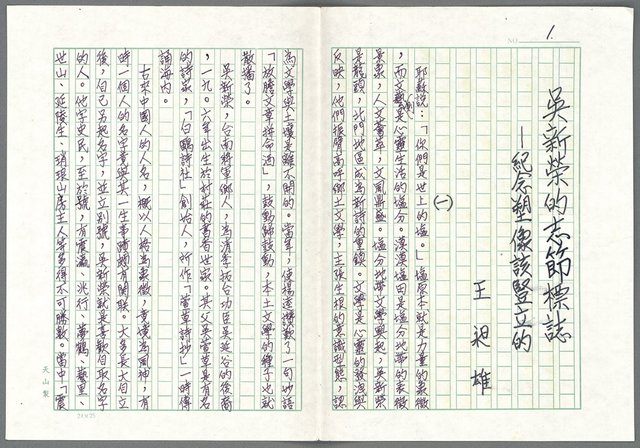 NO. 1.
吳新榮的志節標誌
—紀念塑像該豎立的
王昶雄
(一)
耶穌說:「你們是世上的塩。」塩原本就是力量的象徵
,而文藝則是心靈生活的塩分。漠漠塩田是塩分地帶的表徵
景象,人文薈萃,文風鼎盛。塩分地帶文學興起,吳新榮
是龍頭,北門地區成為新詩的重鎮。文學是心靈的發洩與
反映,他們振臂高呼鄉土文學,主張生根的意識型態,認
為文學與土壤是離不開的。當年,使楊逵讚歎了一句妙語
「放膽文章拚命酒」,鼓動歸鼓動,本土文學的種子也就
散播了。
吳新榮,台南將軍鄉人,為清季拓台功臣吳延谷的後裔
,一九○六年出生於討莊的書香世家。其父吳萱草是有名
的詩家,「白鷗詩社」創始人,所作「萱草詩抄」一時傳
誦海內。
古來中國人的人名,概以人格為象徵,意境為風神,有
時一個人的名字竟與其一生事蹟相有關聯。大多長大自立
後,自己另起名字,並立別號,吳新榮就是喜歡自取名字
的人。他字史民,至於號,有震瀛、兆行、夢鶴、藝里、
世山、延陵生、琑琅山房主人等多得不可勝數。當中「震
天山製
24X25